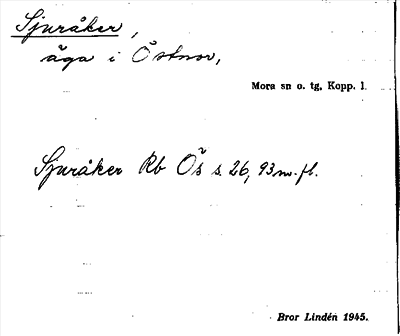 Sjuråker,
äga i Östnor,
Mora sn o. tg, Kopp. l.
Sjuråker Rb Ös s. 26, 93 m. fl.
Bror Lindén 1945.